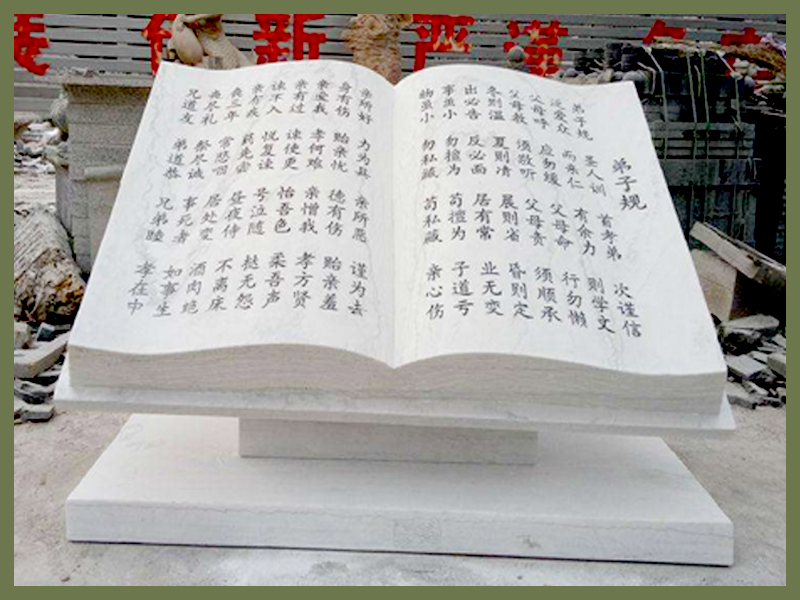 新 严谨
弟子规
弟子规 圣人训 首孝弟 次谨信
泛爱众 而亲仁 有余力 则学文
父母呼 应勿缓 父母命 行勿懒
父母教 须敬听 父母责 须顺承
冬则温 夏则凊 晨则省 昏则定
出必告 反必面 居有常 业无变
事虽小 勿擅为 苟擅为 子道亏
物虽小 勿私藏 苟私藏 亲心伤
亲所好 力为具 亲所恶 谨为去
身有伤 贻亲忧 德有伤 贻亲羞
亲爱我 孝何难 亲憎我 孝方贤
亲有过 谏使更 怡吾色 柔吾声
谏不入 悦复谏 号泣随 挞无怨
亲有疾 药先尝 昼夜侍 不离床
丧三年 常悲咽 居处变 酒肉绝
丧尽礼 祭尽诚 事死者 如事生
兄道友 弟道恭 兄弟睦 孝在中